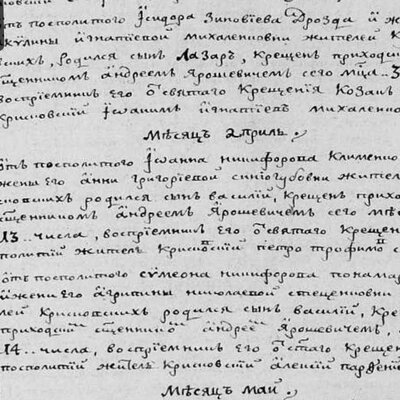 отъ посполитого Ісидора Зиновіева Дрозда и ж
кулины игнатіевой михаленковни жителей К
родился сынъ Лазаръ, крещенъ приходс
священникомъ андреемъ Ярошевичемъ сего мца
воспріемникъ его ѿ святаго крещенія козакъ
крисковскій Іоаннъ игнатіевъ михаленко
Месяцъ Априль.
Отъ посполитого Іоанна никифорова Клименко
жены его анни григоріевой синогубовни жител
сковскихъ родился сынъ василій, крещенъ прихо
священникомъ андреемъ Ярошевичемъ сего ме
13.. числа, воспріемникъ его ѿ святаго креще
посполитій житель крисковскій петро трофимо
Отъ посполитого сумеона никифорова понама
и жени его агрипини николаевой стеценковни
лей Крисковскихъ родился сынъ василій, кре
приходскимъ священникомъ андреемъ Ярошевичемъ,
14.. числа, воспріемникъ его ѿ святаго креще
посполитій житель крисковскій алексій парфеній
Месяцъ май.